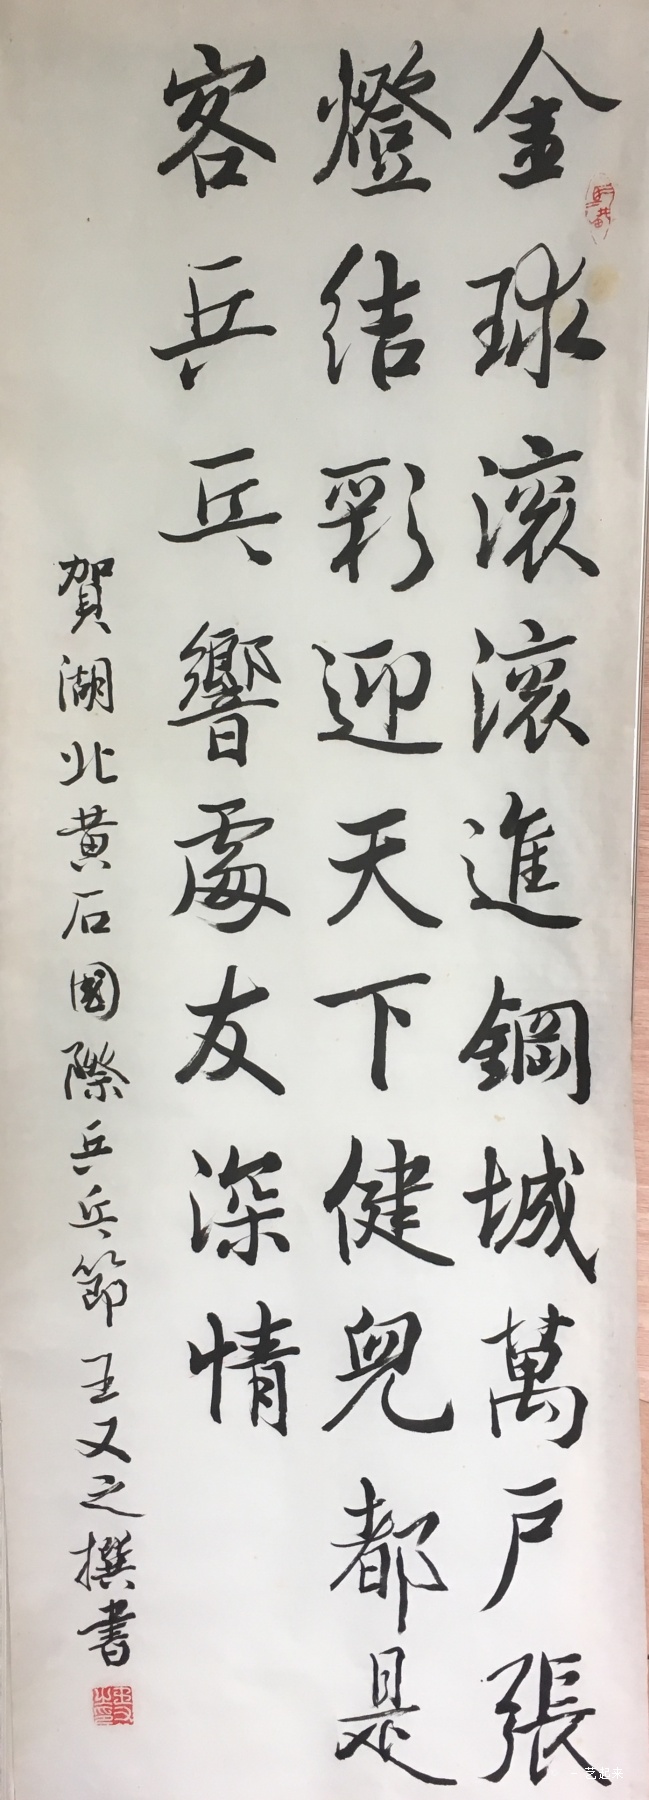 金球滚滚進鋼城萬户張
燈结彩迎天下健兒都是
客乒乓響處友深情
賀湖北黄石國際乒乓節王又之撰書
艺起来